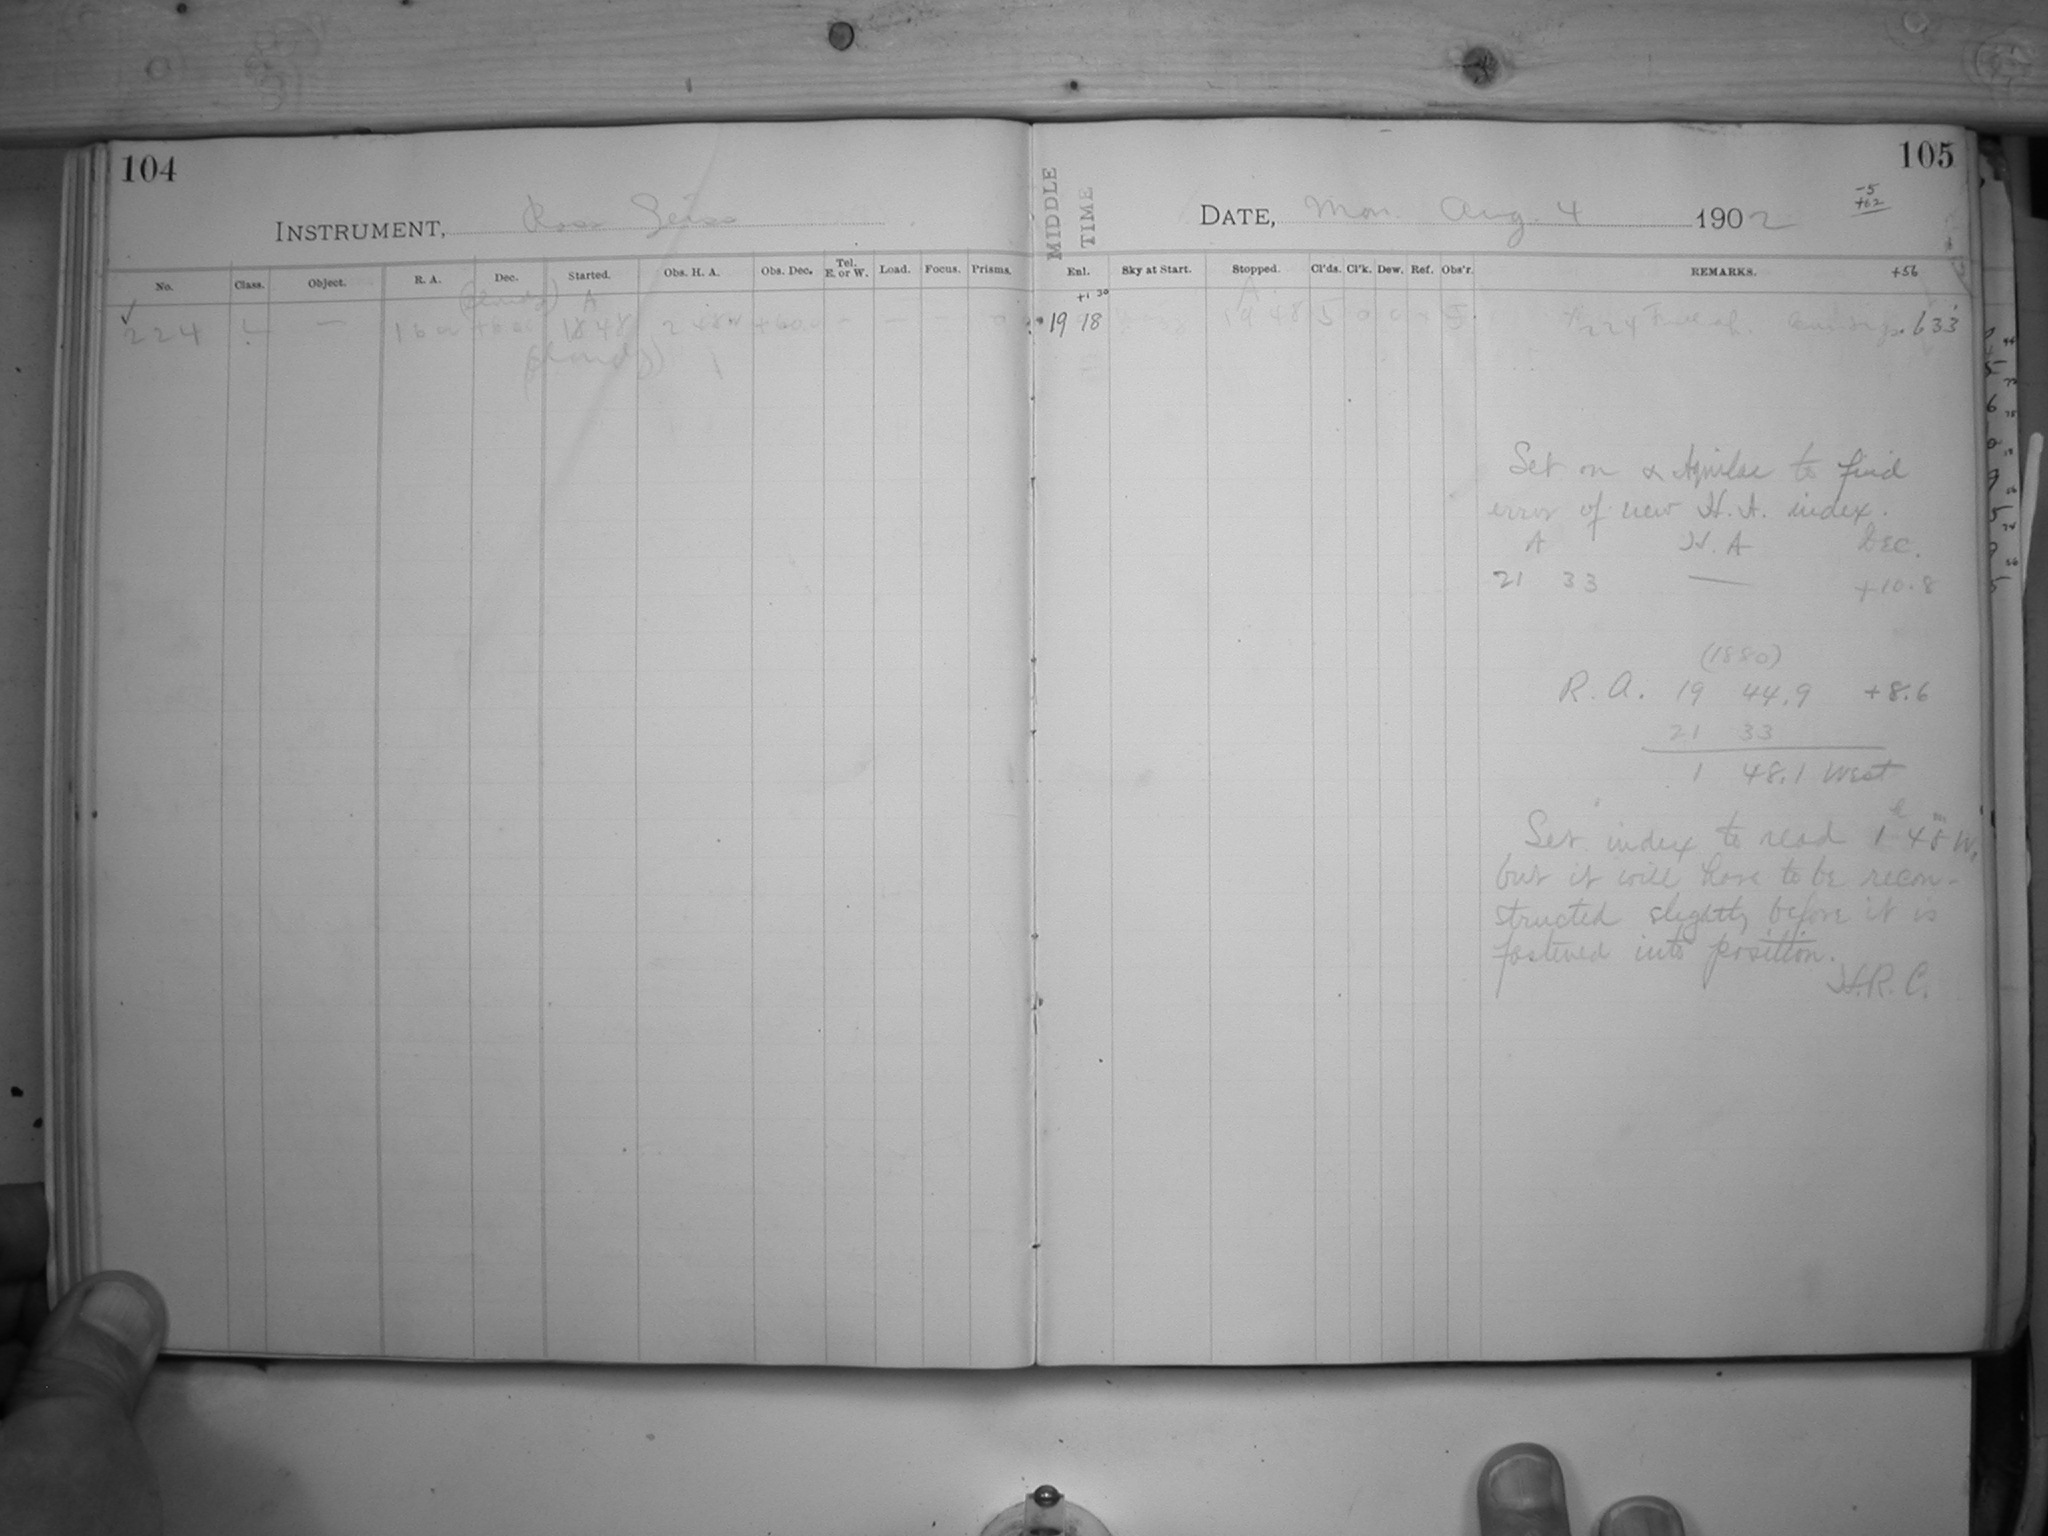 104
INSTRUMENT, Ross
MIDDLE TIME
DATE, Mon. Aug. 4 1902
-5
+62
105
No. Class. Object. R. A. Dec. Started. Obs. H. A. Obs. Dec. Tel. E. or W. Load. Focus. Prisms.
Enl. Sky at Start. Stopped. Cl'ds. Cl'k. Dew. Ref. Obs'r. REMARKS. +56
(clouds) A
+1 30
A
224 L — 16 00 +60 00 18 48 +60 — — — —
19 18 19 48 5 0 224 .633
(clouds)
Set on α Aquilae to find
error of new H. A. index.
A H. A Dec.
21 33 — +10.8
(1880)
R. A. 19 44.9 +8.6
21 33
1 48.1 West
Set index to read 1h 48m W.
but it will have to be recon-
structed slightly before it is
fastened into position.
H.R.C.